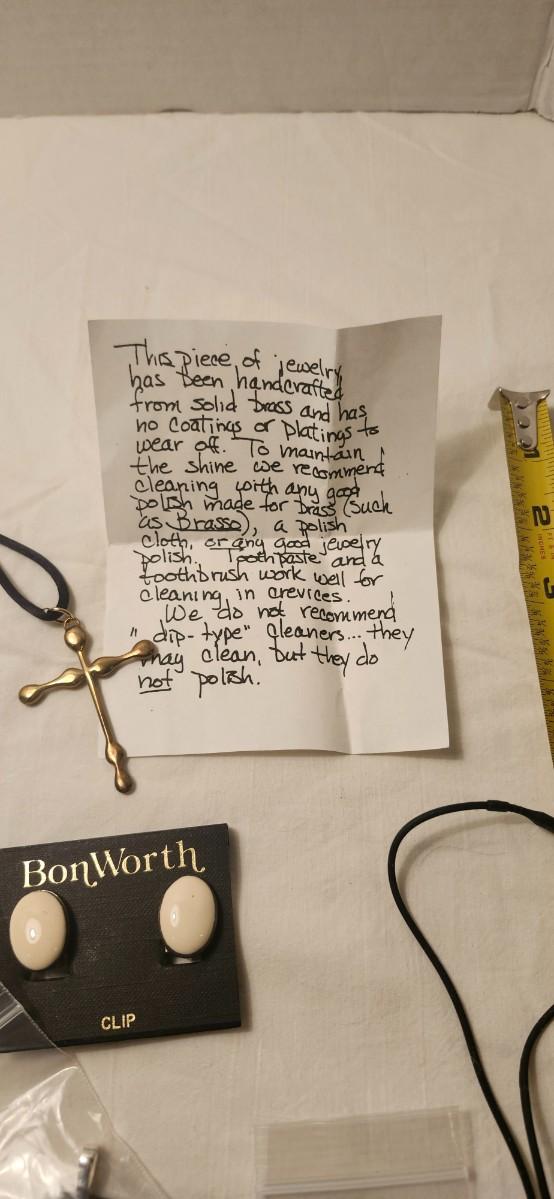 This piece of jewelry
has been handcrafted
from solid brass and has
no coatings or platings to
wear off. To maintain
the shine we recommend
cleaning with any good
polish made for brass (such
as Brasso), a polish
cloth, or any good jewelry
polish. Toothpaste and a
toothbrush work well for
cleaning in crevices.
We do not recommend
"dip-type" cleaners... they
may clean, but they do
not polish.
1
2
INCHES
3
BonWorth
CLIP